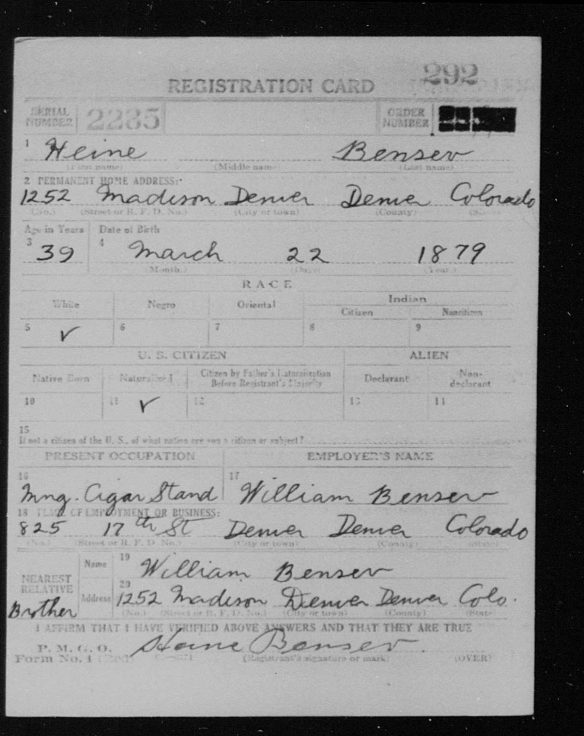 292
REGISTRATION CARD
SERIAL NUMBER 2235 ORDER NUMBER
1 Heine Bensev
(First name) (Middle name) (Last name)
2 PERMANENT HOME ADDRESS:
1252 Madison Denver Denver Colorado
(No.) (Street or R. F. D. No.) (City or town) (County)
Age in Years Date of Birth
3 39 4 March 22 1879
(Month.) (Day.) (Year.)
RACE
White Negro Oriental Indian
Citizen Noncitizen
5 ✓ 6 7 8 9
U. S. CITIZEN ALIEN
Native Born Naturalized Citizen by Father's Naturalization Before Registrant's Majority Declarant Non-declarant
10 11 ✓ 12 13 14
15
If not a citizen of the U. S., of what nation are you a citizen or subject?
PRESENT OCCUPATION EMPLOYER'S NAME
16 Mng. Cigar Stand 17 William Bensev
18 PLACE OF EMPLOYMENT OR BUSINESS:
825 17th St Denver Denver Colorado
(No.) (Street or R. F. D. No.) (City or town) (County) (State)
NEAREST RELATIVE Name 19 William Bensev
Brother Address 20 1252 Madison Denver Denver Colo.
(No.) (Street or R. F. D. No.) (City or town) (County) (State)
I AFFIRM THAT I HAVE VERIFIED ABOVE ANSWERS AND THAT THEY ARE TRUE
P. M. G. O.
Form No. 1 (Red) Heine Bensev
(Registrant's signature or mark) (OVER)